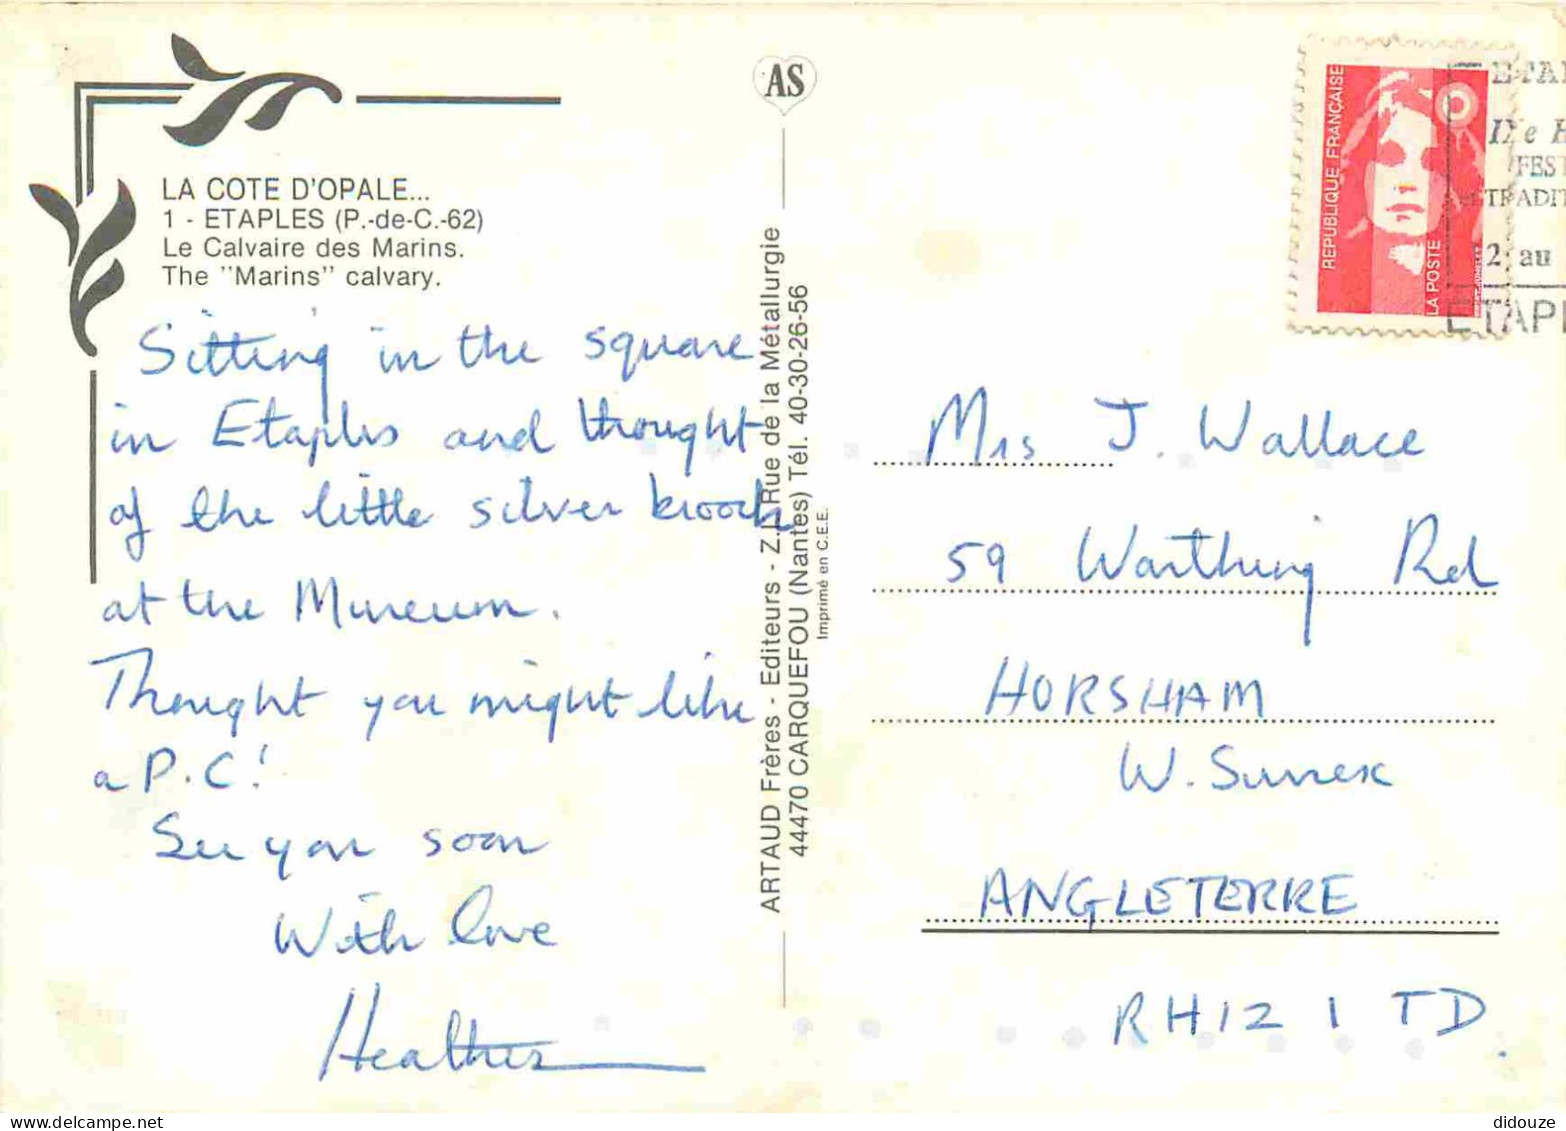 LA COTE D'OPALE...
1 - ETAPLES (P.-de-C.-62)
Le Calvaire des Marins.
The "Marins" calvary.
Sitting in the square
in Etaples and thought
of the little silver brooch
at the Museum.
Thought you might like
a P.C!
See you soon
With love
Heather
AS
ARTAUD Frères - Editeurs - Z.I. Rue de la Métallurgie
44470 CARQUEFOU (Nantes) Tél. 40-30-26-56
Imprimé en C.E.E.
REPUBLIQUE FRANÇAISE
LA POSTE
ETA
FEST
TRADIT
2 au
ETAPL
Mrs J. Wallace
59 Worthing Rd
HORSHAM
W. Sussex
ANGLETERRE
RH12 1TD.
didouze